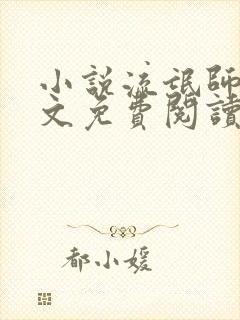 小說流氓師
文免費閱讀
都小媛